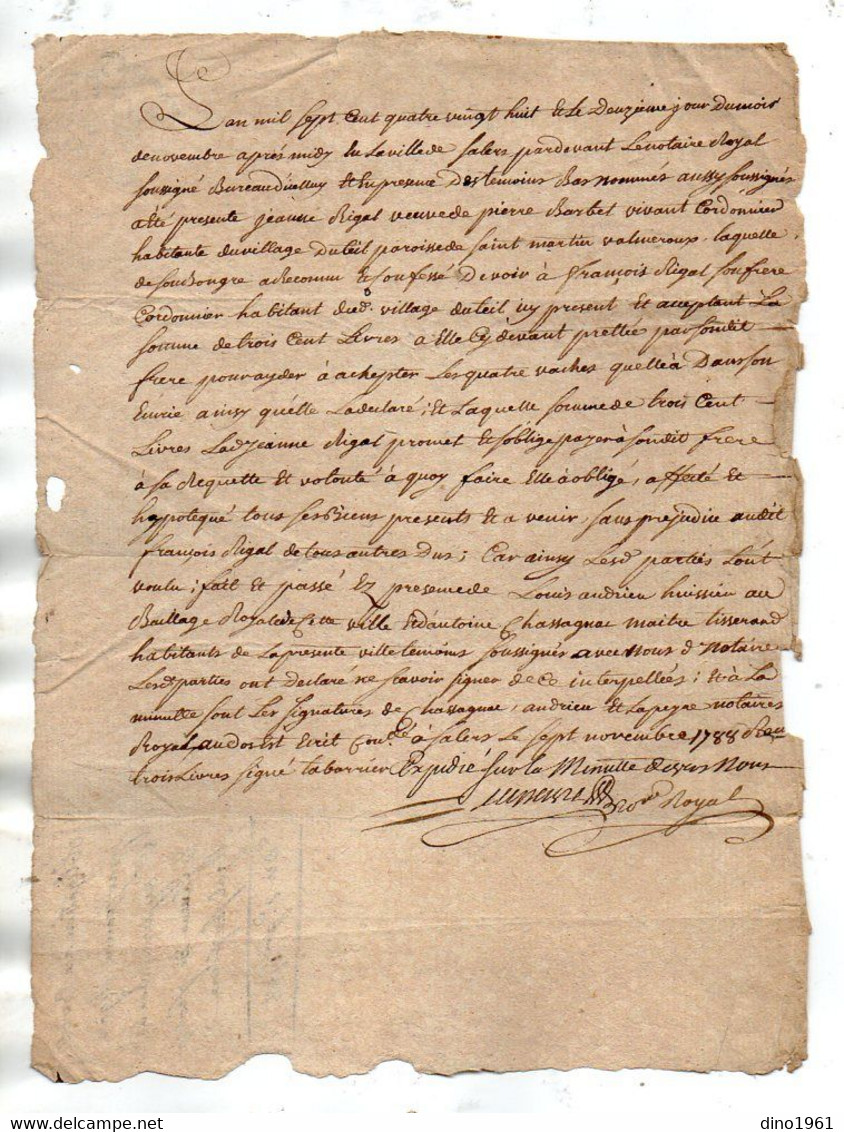 L'an mil sept Cent quatre vingt huit et le Deuzieme jour Dumois
denovembre apres midy En Laville de Salers pardevant Lenotaire Royal
soussigné et Enpresence Destemoins Bas nommés aussy soussignés
a Eté presente jeanne Rigal veuve de pierre Barbet vivant Cordonnier
habitante du village Duteil paroisse de Saint martin valmeroux, laquelle
de son Bon gre a Reconnu et Confessé Devoir à François Rigal son frere
Cordonnier habitant dud. village duteil icy present Et acceptant La
somme de trois Cent Livres a Elle Cy devant prettée par sondit
frere pour ayder à achepter Les quatre vaches quelle à Dans son
Ecurie ainsy qu'elle La declaré; Et Laquelle somme de trois Cent
Livres Lad. jeanne Rigal promet Et s'oblige payer à sondit frere
à sa Requette Et volonté à quoy faire Elle à obligé, affecté et
hypotequé tous ses Biens presents Et a venir, sans prejudice audit
françois Rigal de tous autres Dus; Car ainsy Lesd. parties L'ont
voulu; fait Et passé Ez presence de Louis andrieu huissier au
Baillage Royal de Cette ville Et d'antoine Chassagnac maitre tisserand
habitants de La presente ville temoins soussignés avec Nous d. Notaire
Lesd. parties ont declaré ne scavoir signer de Ce interpellées; Et à La
minutte sont Les signatures de Chassagnac, andrieu Et Lapeyre notaires
Royal, audos Est Ecrit Conlé à Salers Le sept novembre 1788 Reçu
trois Livres signé tabarrier Expedié sur la Minutte devers Nous
Nore Royal
dino1961